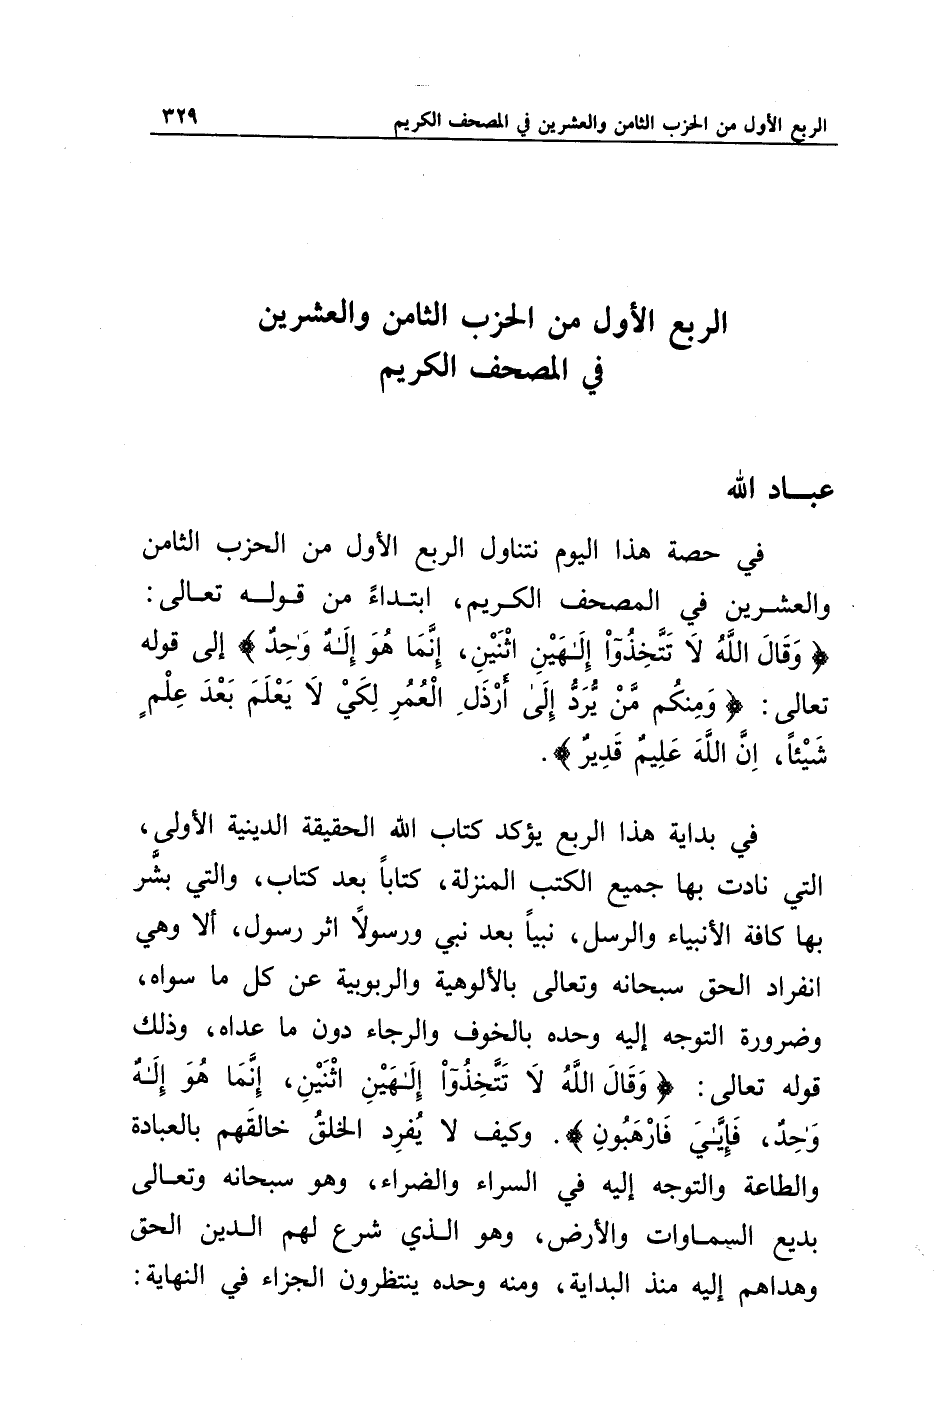 الربع الأول من الحزب الثامن والعشرين في المصحف الكريم ٣٢٩
الربع الأول من الحزب الثامن والعشرين
في المصحف الكريم
عبـــاد الله
في حصة هذا اليوم نتناول الربع الأول من الحزب الثامن
والعشـرين في المصحف الكـريم، ابتـداءً من قـولـه تعـالى:
﴿ وَقَالَ اللَّهُ لَا تَتَّخِذُوٓاْ إِلَـٰهَيْنِ اثْنَيْنِ، إِنَّمَا هُوَ إِلَـٰهٌ وَٰحِدٌ ﴾ إلى قوله
تعالى: ﴿ وَمِنكُم مَّنْ يُّرَدُّ إِلَىٰ أَرْذَلِ الْعُمُرِ لِكَيْ لَا يَعْلَمَ بَعْدَ عِلْمٍ
شَيْئاً، اِنَّ اللَّهَ عَلِيمٌ قَدِيرٌ ﴾.
في بداية هذا الربع يؤكد كتاب الله الحقيقة الدينية الأولى،
التي نادت بها جميع الكتب المنزلة، كتاباً بعد كتاب، والتي بشَّر
بها كافة الأنبياء والرسل، نبياً بعد نبي ورسولًا اثر رسول، ألا وهي
انفراد الحق سبحانه وتعالى بالألوهية والربوبية عن كل ما سواه،
وضرورة التوجه إليه وحده بالخوف والرجاء دون ما عداه، وذلك
قوله تعالى: ﴿ وَقَالَ اللَّهُ لَا تَتَّخِذُوٓاْ إِلَـٰهَيْنِ اثْنَيْنِ، إِنَّمَا هُوَ إِلَـٰهٌ
وَٰحِدٌ، فَإِيَّـٰيَ فَارْهَبُونِ ﴾. وكيف لا يُفرِد الخلقُ خالقَهم بالعبادة
والطاعة والتوجه إليه في السراء والضراء، وهو سبحانه وتعـالى
بديع السمـاوات والأرض، وهو الـذي شرع لهم الـدين الحق
وهداهم إليه منذ البداية، ومنه وحده ينتظرون الجزاء في النهاية: